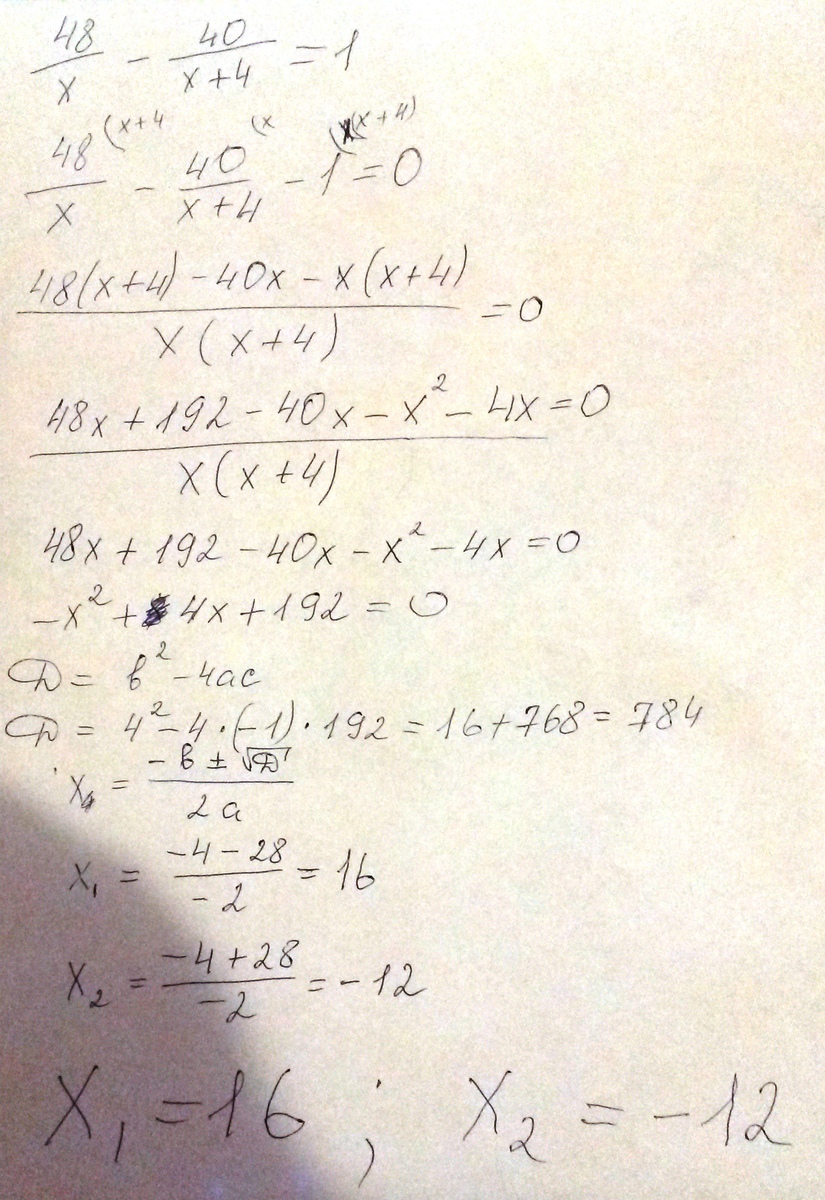 48/x - 40/(x+4) = 1
48(x+4/x - 40(x/(x+4) - 1(x(x+4) = 0
(48(x+4) - 40x - x(x+4))/(x(x+4)) = 0
(48x + 192 - 40x - x² - 4x = 0)/(x(x+4))
48x + 192 - 40x - x² - 4x = 0
-x² + 4x + 192 = 0
D = b² - 4ac
D = 4² - 4·(-1)·192 = 16 + 768 = 784
x = (-b ± √D)/(2a)
x₁ = (-4 - 28)/(-2) = 16
x₂ = (-4 + 28)/(-2) = -12
X₁ = 16 ; X₂ = -12